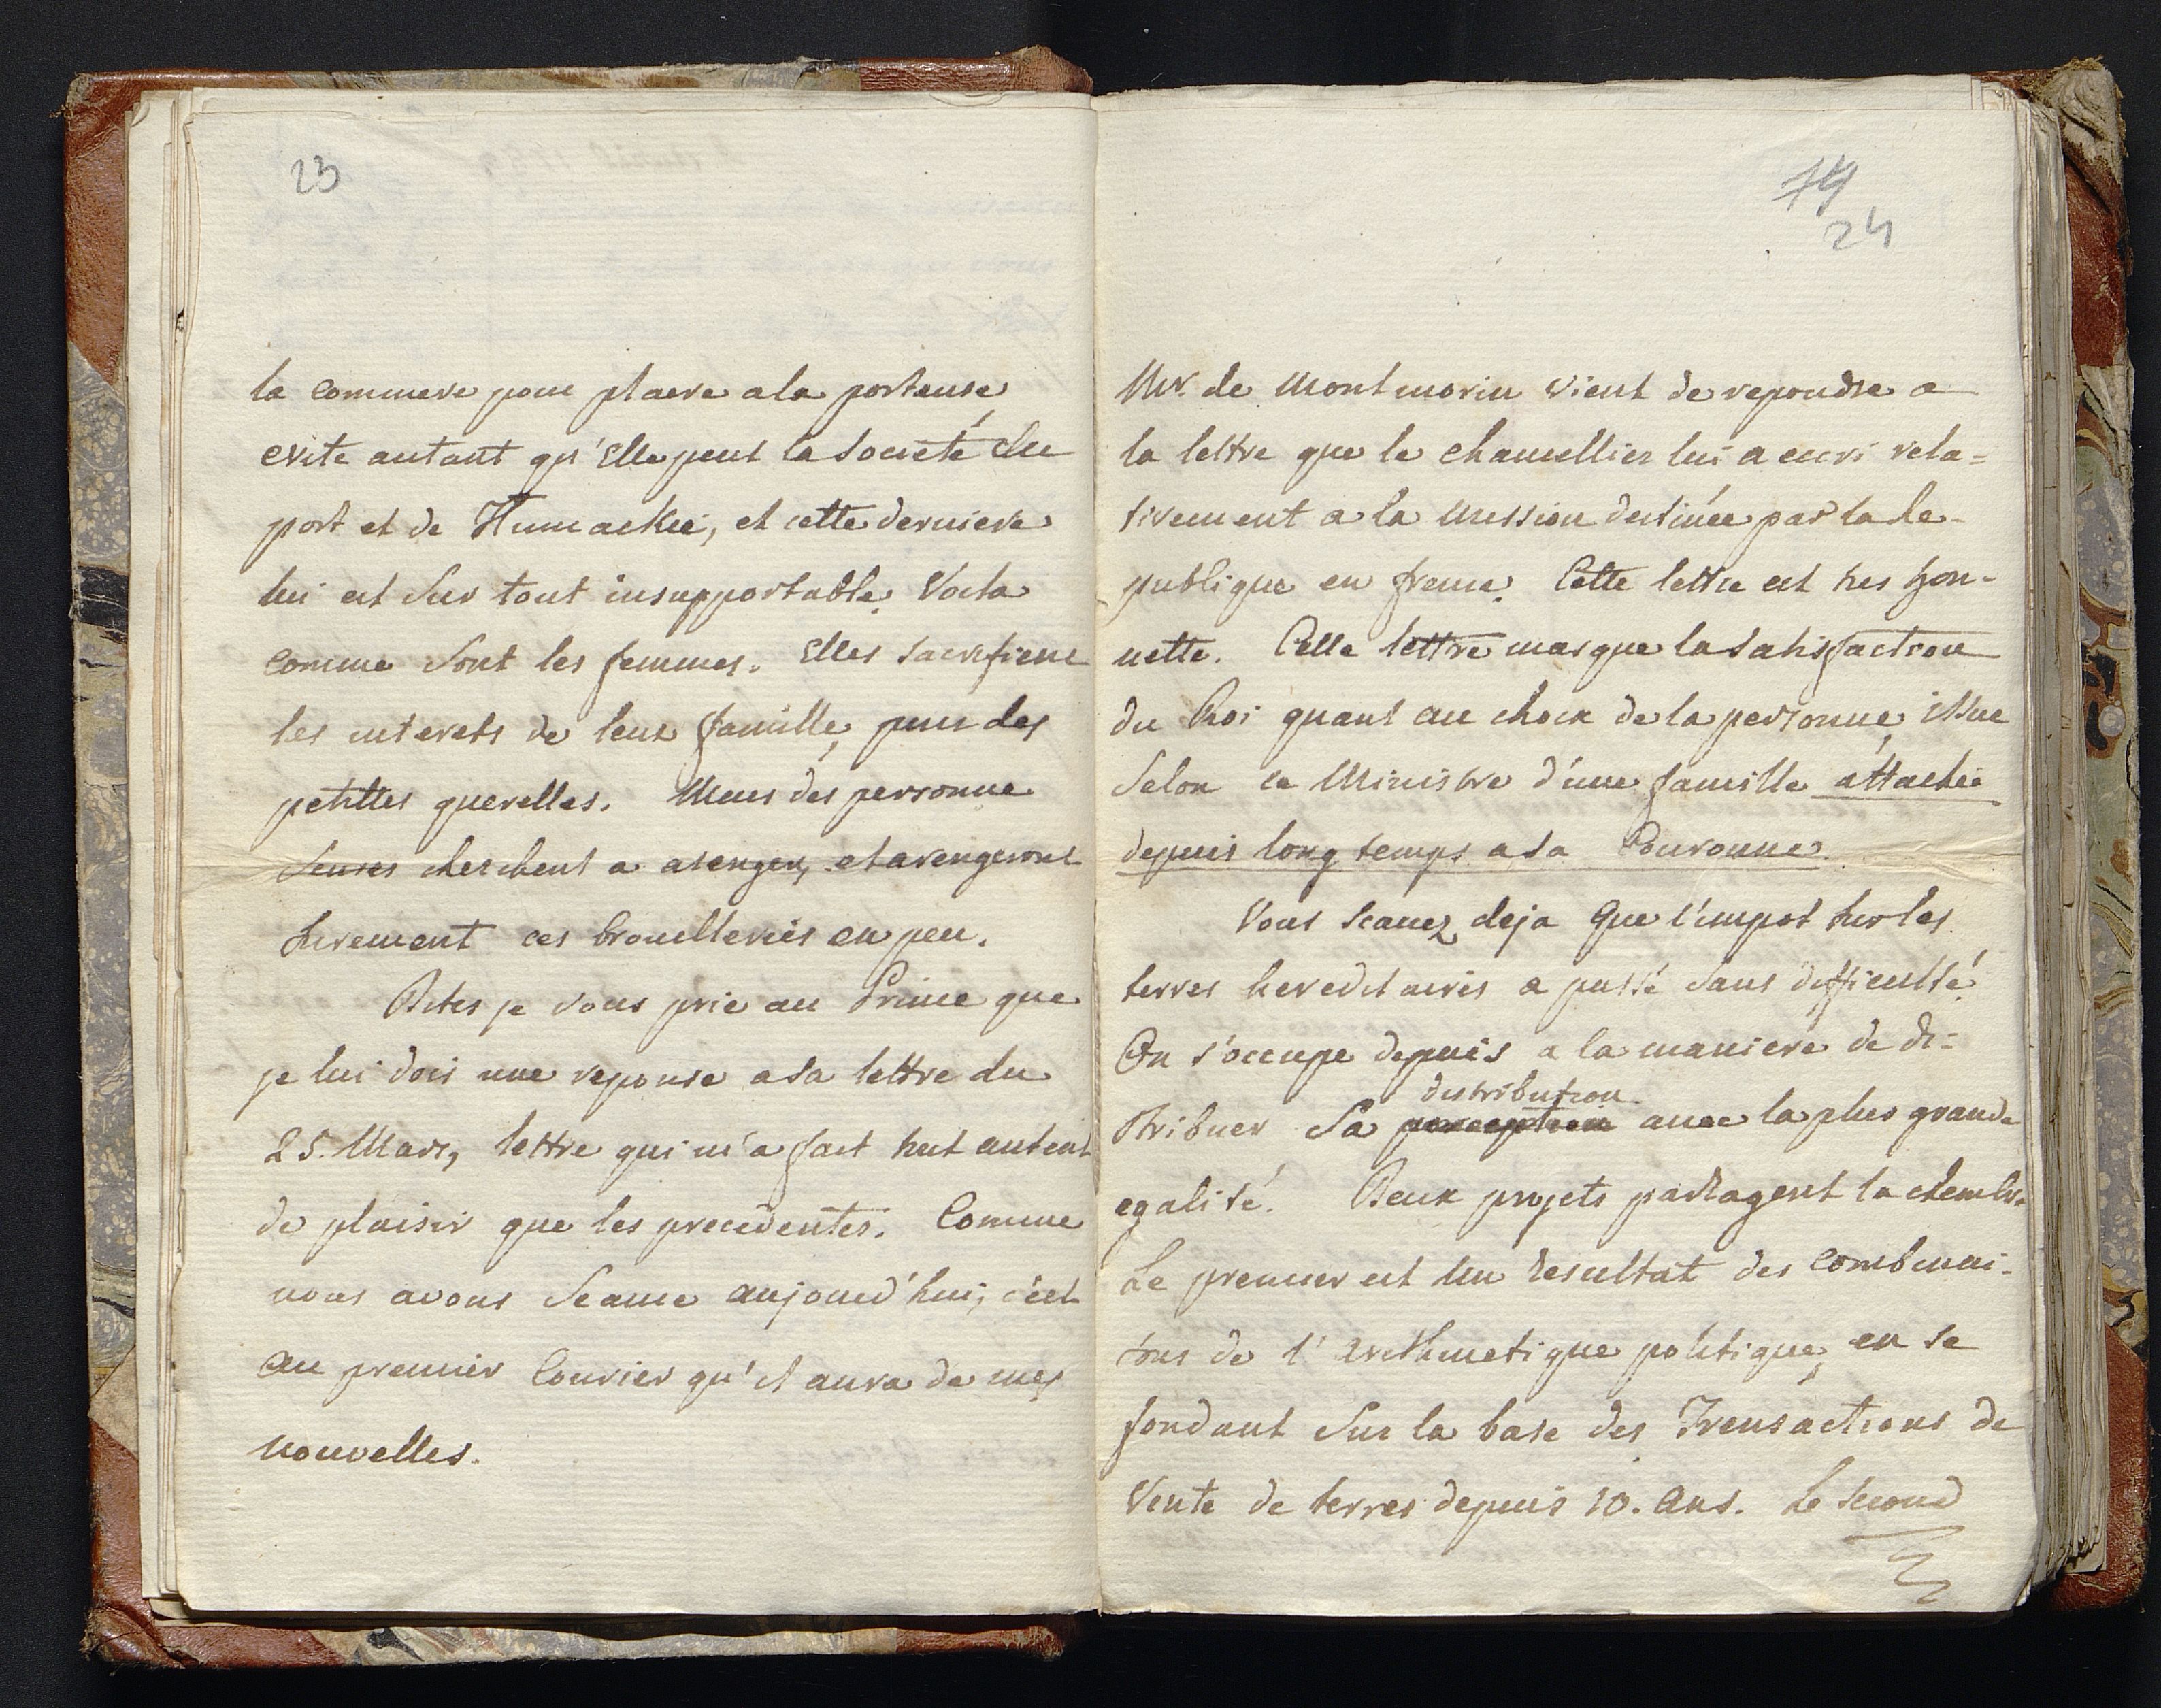 23
la commere pour plaere a la porteuse,
evite autant qu'Elle peut la societé du
port et de Humackie, et cette derniere
lui est sur tout insupportable. Voila
comme sont les femmes. Elles sacrifient
les interets de leur famille, pour des
petittes querelles. Mais des personne
senses cherchent a arenger, et arengeront
surement ces brouilleries en peu.
Dites je vous prie au Prince que
je lui dois une reponse a sa lettre du
25. Mars, lettre qui m'a fait tout autent
de plaisir que les precedentes. Comme
nous avons Seance aujourd'hui, c'est
au premier Courier qu'il aura de mes
nouvelles.
74
24
Mr. de Montmorin vient de repondre a
la lettre que le chancellier lui a ecri rela=
tivement a la mission destinée par la Re-
publique en france. Cette lettre est tres hon-
nette. Celle lettre marque la satisfaction
du Roi quant au choix de la personne, issue
selon ce Ministre d'une famille attachée
depuis long temps a sa Couronne.
Vous scavez deja que l'impot sur les
terres hereditaires a passé sans difficulté.
On s'occupe depuis a la maniere de di-
distribution
stribuer sa perception avec la plus grande
egalité. Deux projets partagent la chembre
Le premier est un resultat des combinai-
sons de l'arithmetique politique, en se
fondant sur la base des Trensactions de
Vente de terres depuis 10. ans. Le second